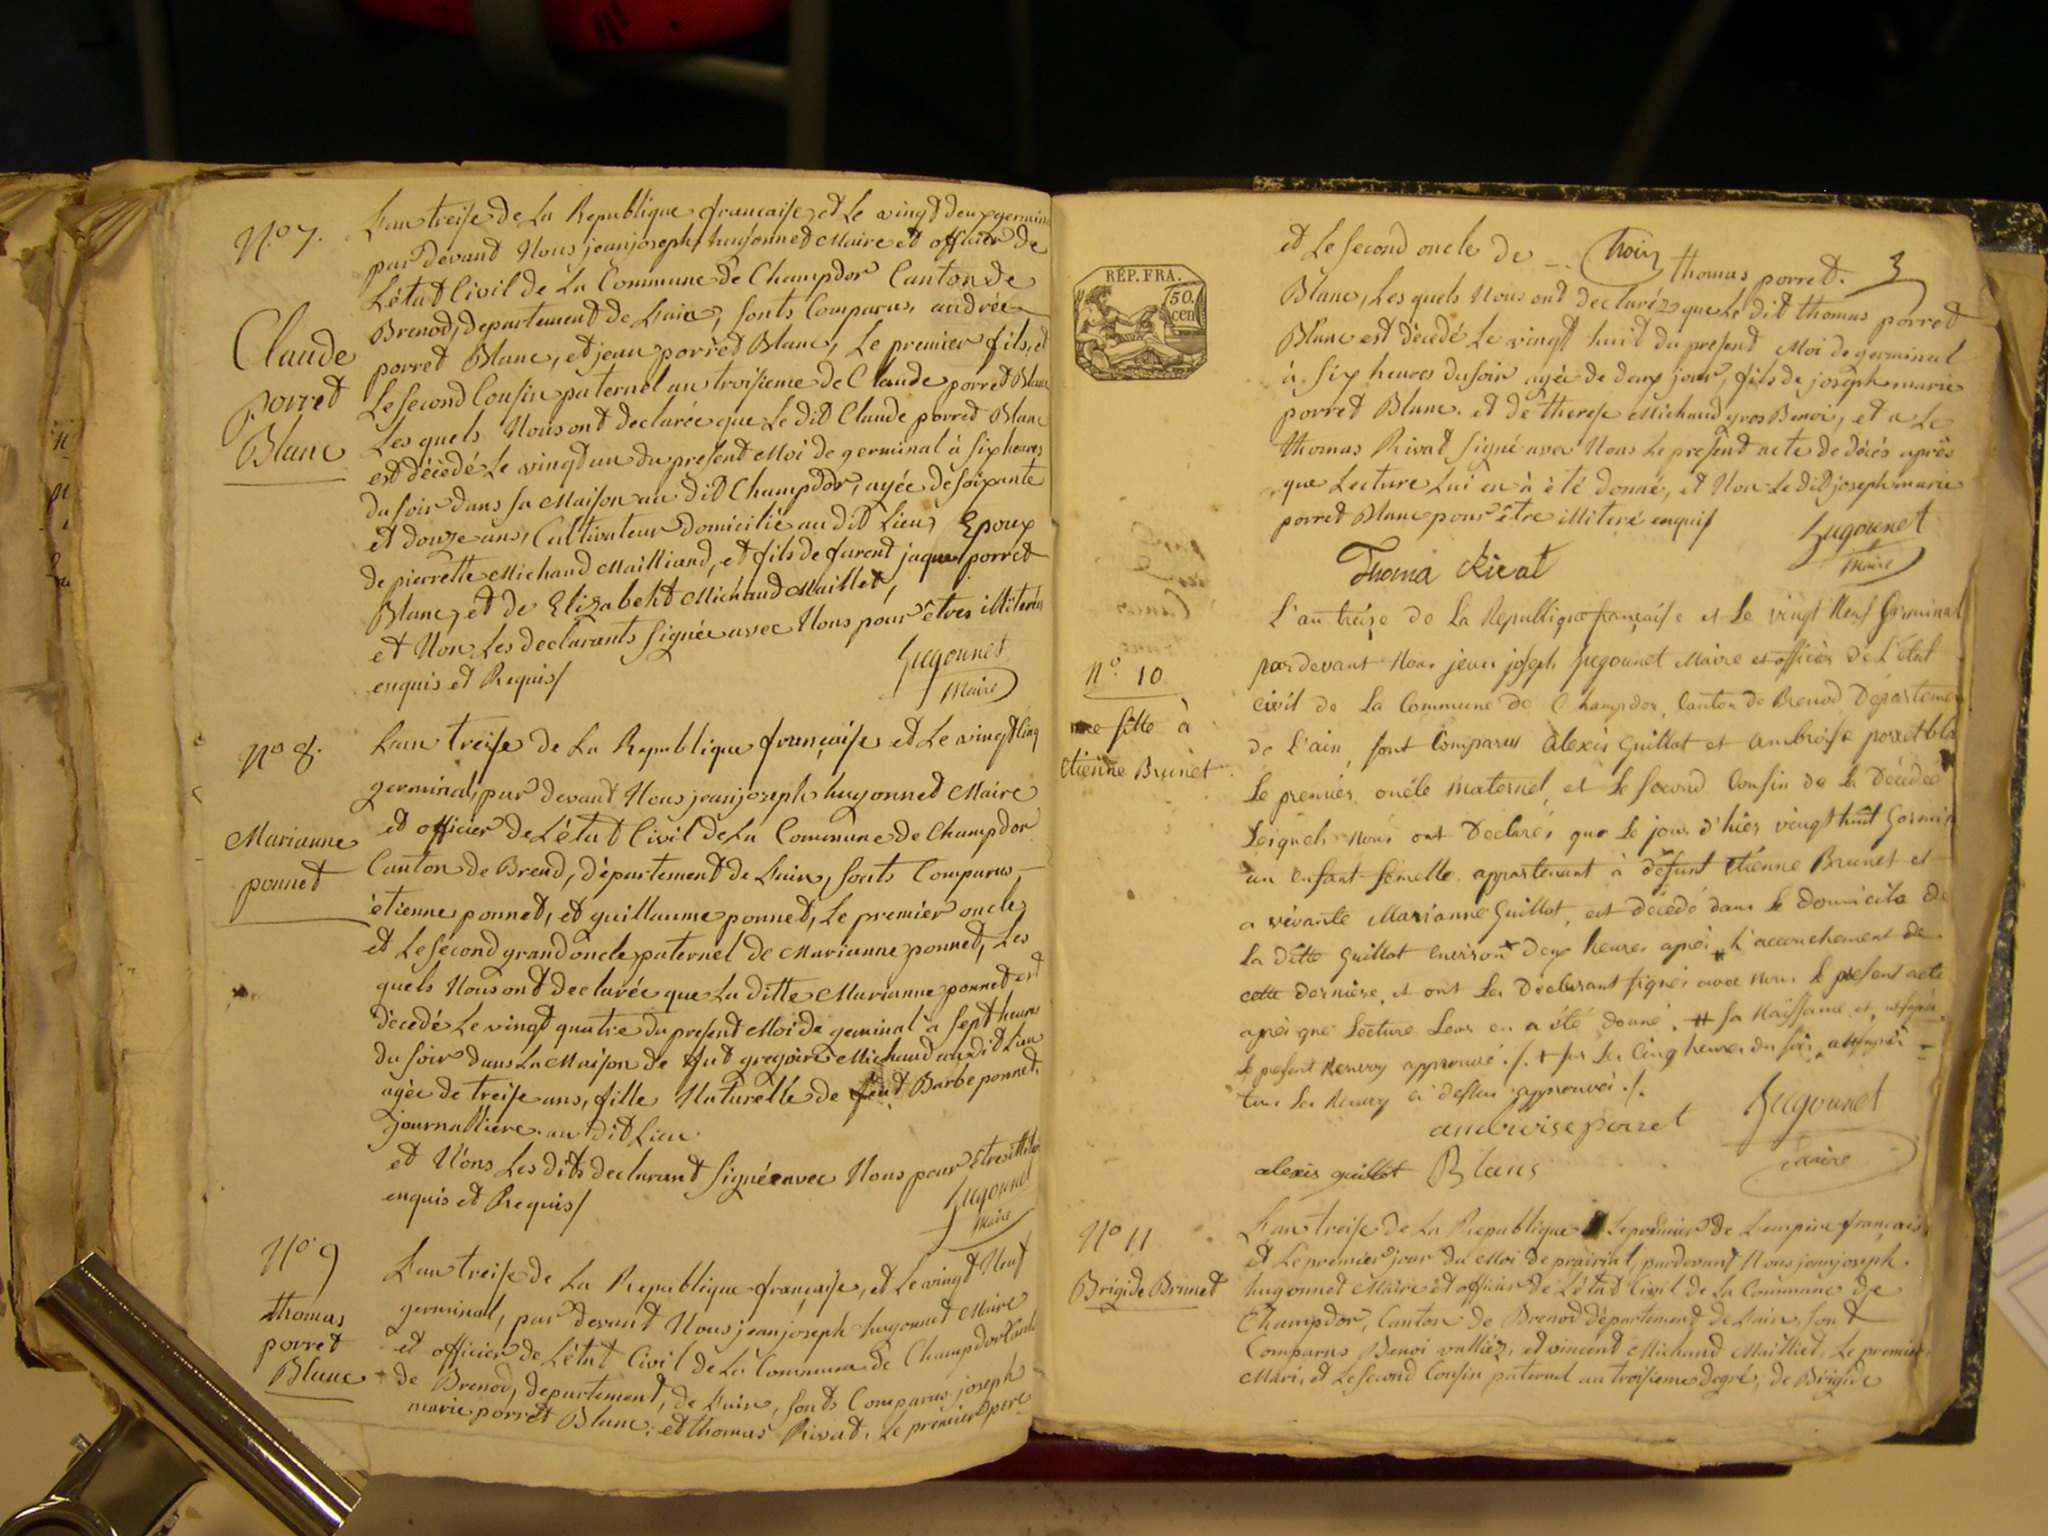 N.o 7.
Claude
porret
Blanc
L'an treise de La Republique francaise, et Le vingt deux germinal
par devant Nous jean joseph hugonnet Maire et officier de
L'état Civil de La Commune de Champdor Canton de
Brenod, departement de Lain, sonts Comparus, andrée
porret Blanc, et jean porret Blanc, Le premier fils, et
Le second Cousin paternel au troisieme de Claude porret Blanc
Les quels Nous ont declarée que Le dit Claude porret Blanc
est dècedé Le vingt un du present Moi de germinal à six heures
du soir dans sa Maison au dit Champdor, agée de soixante
et douze ans, Cultivateur domicilié au dit Lieu, Epoux
de pierrette Michaud Mailliand, et fils de furent jaque porret
Blanc, et de Elizabeht Michaud Maillet,
et Non Les declarants signée avec Nous pour êtres illiterés
enquis et Requis/
Hugonnet
Maire
No 8.
Marianne
ponnet
L'an treise de La Republique française et Le vingt Cinq
germinal, par devant Nous jean joseph hugonnet Maire
et officier de L'état Civil de La Commune de Champdor
Canton de Brend, département de Lain, sonts Comparus
ètienne ponnet, et guillaume ponnet, Le premier oncle
et Le second grand oncle paternel de Marianne ponnet, Les
quels Nous ont declarée que La ditte Marianne ponnet est
dècedé Le vingt quatre du present Moi de geminal à sept heures
du soir dans La Maison de gregoire Michaud au dit Lieu
agée de treise ans, fille Naturelle de feut Barbe ponnet,
journalliere au dit Lieu
et Nons Les dits declarant signée avec Nous pour êtres illiterés
enquis et Requis/
Hugonnet
Maire
No 9
thomas
porret
Blanc
L'an treise de La Republique française, et Le vingt Neuf
germinal, par devant Nous jean joseph hugonnet Maire
et officier de L'état Civil de La Commune de Champdor Canton
de Brenod, departement, de Lain, sonts Comparus joseph
marie porret Blanc, et thomas Rivat, Le premier pere
et Le second oncle de thomas porret 3
Blanc, Les quels Nous ont declaréz que Le dit thomas porret
Blanc est dècedé Le vingt huit du present Moi de germinal
à six heures du soir agée de deux jour, fils de joseph marie
porret Blanc, et de therese Michaud gros Benoi, et a Le
thomas Rivat signé avec Nous Le present acte de décés après
que Lecture Lui en à été donné, et Non Le dit joseph marie
porret Blanc pour être illiteré enquis/
Hugonnet
Maire
Thoma Rivat
RÉP. FRA.
50.
cen
No. 10
une fille à
Etienne Brunet
L'an treize de La République française et Le vingt Neuf Germinal
pardevant Nous jean joseph hugonnet Maire et officier de L'état
civil de La Commune de Champdor, Canton de Brenod Departement
de L'ain, sont Comparus alexis guillot et ambroise porret bla
Le premier oncle maternel, et Le second Cousin de La Décédée
Lesquels nous ont Declarés que Le jour d'hier vingt huit Germin
un enfant femelle appartenant à défunt Etienne Brunet et
a vivante Marianne Guillot, est décédé dans Le domicile de
La ditte Guillot environ + deux heures après # L'accouchement de
cette dernière, et ont Les Declarant signés avec nous Le present acte
après que Lecture Leur en a été donné. # sa Naissance et
Le present Renvoy approuvé ./. + sur Les Cinq heures du soir
tous Les Renvoy ci dessus approuvés ./.
ambroise porret
Blanc
alexis guillot
Hugonnet
Maire
No 11
Brigide Brunet
L'an treise de La Republique Le premier de L'empire français
et Le premier jour du Moi de prairial, par devant Nous jean joseph
hugonnet Maire et officier de L'état Civil de La Commune de
Champdor, Canton de Brenod département de Lain, sont
Comparus Benoi valliéz, et vincent Michaud Mailliet, Le premier
Mari, et Le second Cousin paternel au troisieme degré, de Brigide